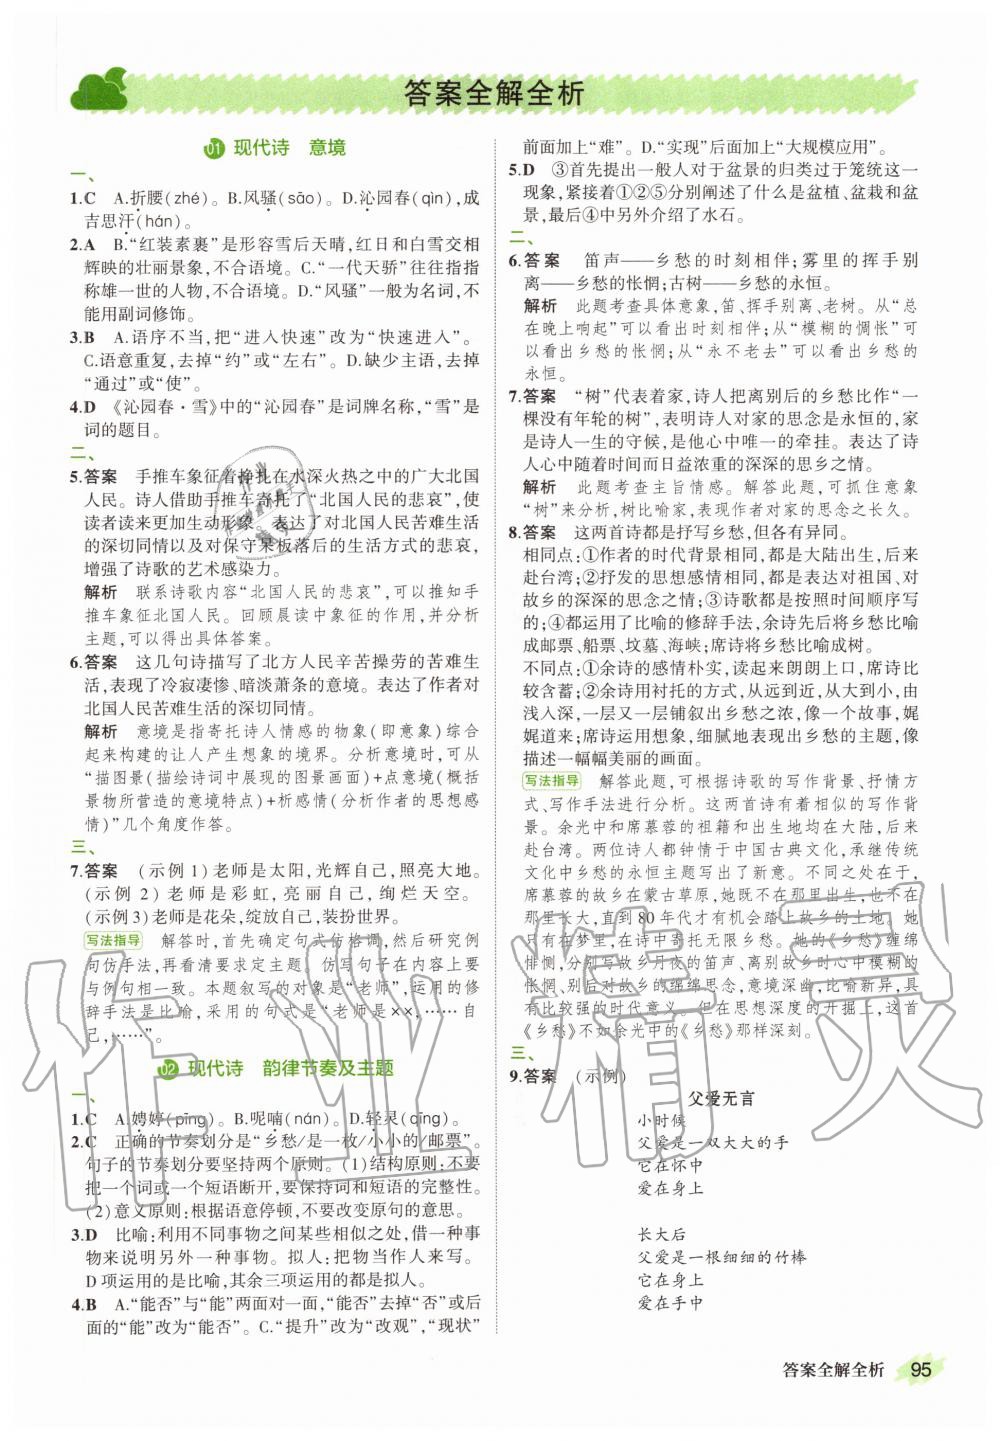 答案全解全析
01 现代诗 意境
一、
1.C A.折腰(zhé)。B.风骚(sāo)。D.沁园春(qìn),成
吉思汗(hán)。
2.A B.“红装素裹”是形容雪后天晴,红日和白雪交相
辉映的壮丽景象,不合语境。C.“一代天骄”往往指指
称雄一世的人物,不合语境。D.“风骚”一般为名词,不
能用副词修饰。
3.B A.语序不当,把“进入快速”改为“快速进入”。
C.语意重复,去掉“约”或“左右”。D.缺少主语,去掉
“通过”或“使”。
4.D 《沁园春·雪》中的“沁园春”是词牌名称,“雪”是
词的题目。
二、
5.答案 手推车象征着挣扎在水深火热之中的广大北国
人民。诗人借助手推车寄托了“北国人民的悲哀”,使
读者读来更加生动形象。表达了对北国人民苦难生活
的深切同情以及对保守呆板落后的生活方式的悲哀,
增强了诗歌的艺术感染力。
解析 联系诗歌内容“北国人民的悲哀”,可以推知手
推车象征北国人民。回顾晨读中象征的作用,并分析
主题,可以得出具体答案。
6.答案 这几句诗描写了北方人民辛苦操劳的苦难生
活,表现了冷寂凄惨、暗淡萧条的意境。表达了作者对
北国人民苦难生活的深切同情。
解析 意境是指寄托诗人情感的物象(即意象)综合
起来构建的让人产生想象的境界。分析意境,可以从
“描图景(描绘诗词中展现的图景画面)+点意境(概括
景物所营造的意境特点)+析感情(分析作者的思想感
情)”几个角度作答。
三、
7.答案 (示例1)老师是太阳,光辉自己,照亮大地。
(示例2)老师是彩虹,亮丽自己,绚烂天空。
(示例3)老师是花朵,绽放自己,装扮世界。
写法指导 解答时,首先确定句式仿格调,然后研究例
句仿手法,再看清要求定主题。仿写句子在内容上要
与例句相一致。本题叙写的对象是“老师”,运用的修
辞手法是比喻,采用的句式是“老师是××,……自
己,……”。
02 现代诗 韵律节奏及主题
一、
1.C A.娉婷(pīng)。B.呢喃(nán)。D.轻灵(qīng)。
2.C 正确的节奏划分是“乡愁/是一枚/小小的/邮票”。
句子的节奏划分要坚持两个原则。(1)结构原则:不要
把一个词或一个短语断开,要保持词和短语的完整性。
(2)意义原则:根据语意停顿,不要改变原句的意思。
3.D 比喻:利用不同事物之间某些相似之处,借一种事
物来说明另外一种事物。拟人:把物当作人来写。
D项运用的是比喻,其余三项运用的都是拟人。
4.B A.“能否”与“能”两面对一面,“能否”去掉“否”或后
面的“能”改为“能否”。C.“提升”改为“改观”,“现状”
前面加上“难”。D.“实现”后面加上“大规模应用”。
5.D ③首先提出一般人对于盆景的归类过于笼统这一
现象,紧接着①②⑤分别阐述了什么是盆植、盆栽和盆
景,最后④中另外介绍了水石。
二、
6.答案 笛声——乡愁的时刻相伴;雾里的挥手别
离——乡愁的怅惘;古树——乡愁的永恒。
解析 此题考查具体意象,笛、挥手别离、老树。从“总
在晚上响起”可以看出时刻相伴;从“模糊的惆怅”可
以看出乡愁的怅惘;从“永不老去”可以看出乡愁的
永恒。
7.答案 “树”代表着家,诗人把离别后的乡愁比作“一
棵没有年轮的树”,表明诗人对家的思念是永恒的,家
是诗人一生的守候,是他心中唯一的牵挂。表达了诗
人随着时间而日益浓重的深深的思乡之情。
解析 此题考查主旨情感。解答此题,可抓住意象
“树”来分析,树比喻家,表现作者对家的思念之长久。
8.答案 这两首诗都是抒写乡愁,但各有异同。
相同点:①作者的时代背景相同,都是大陆出生,后来
赴台湾;②抒发的思想感情相同,都表达了对祖国、对
故乡的深深的思念之情;③诗歌都是按照时间顺序写
的;④都运用了比喻的修辞手法,余诗先后将乡愁比喻
成邮票、船票、坟墓、海峡;席诗将乡愁比喻成树。
不同点:①余诗的感情朴实,读起来朗朗上口,席诗比
较含蓄;②余诗用衬托的方式,从远到近,从大到小,由
浅入深,一层又一层铺叙出乡愁之浓,像一个故事,娓
娓道来;席诗运用想象,细腻地表现出乡愁之苦,像
描述一幅幅美丽的画面。
写法指导 解答此题,可根据诗歌的写作背景、抒情方
式、写作手法进行分析。这两首诗有着相似的写作背
景。余光中和席慕蓉的祖籍和出生地均在大陆,后来
赴台湾。两位诗人都钟情于中国古典文化,承继传统
文化中乡愁的永恒主题写出了新意。不同之处在于,
席慕蓉的故乡在蒙古草原,她既不在那里出生,也不在
那里成长,直到80年代才有机会踏上故乡的土地。她
只有在梦里,在诗中寄托无限乡愁。她的《乡愁》缠绵
悱恻,分别写故乡月夜的笛声、离别故乡时心中模糊的
怅惘、对故乡的绵绵思念,意境深幽,比喻新异,具
有比较强的时代意义。但在思想深度的开掘上,这首
《乡愁》不如余光中的《乡愁》那样深刻。
三、
9.答案 (示例)
父爱无言
小时候
父爱是一双大大的手
它在怀中
爱在身上
长大后
父爱是一根细细的竹棒
它在身上
爱在手中
答案全解全析 95
作业精灵